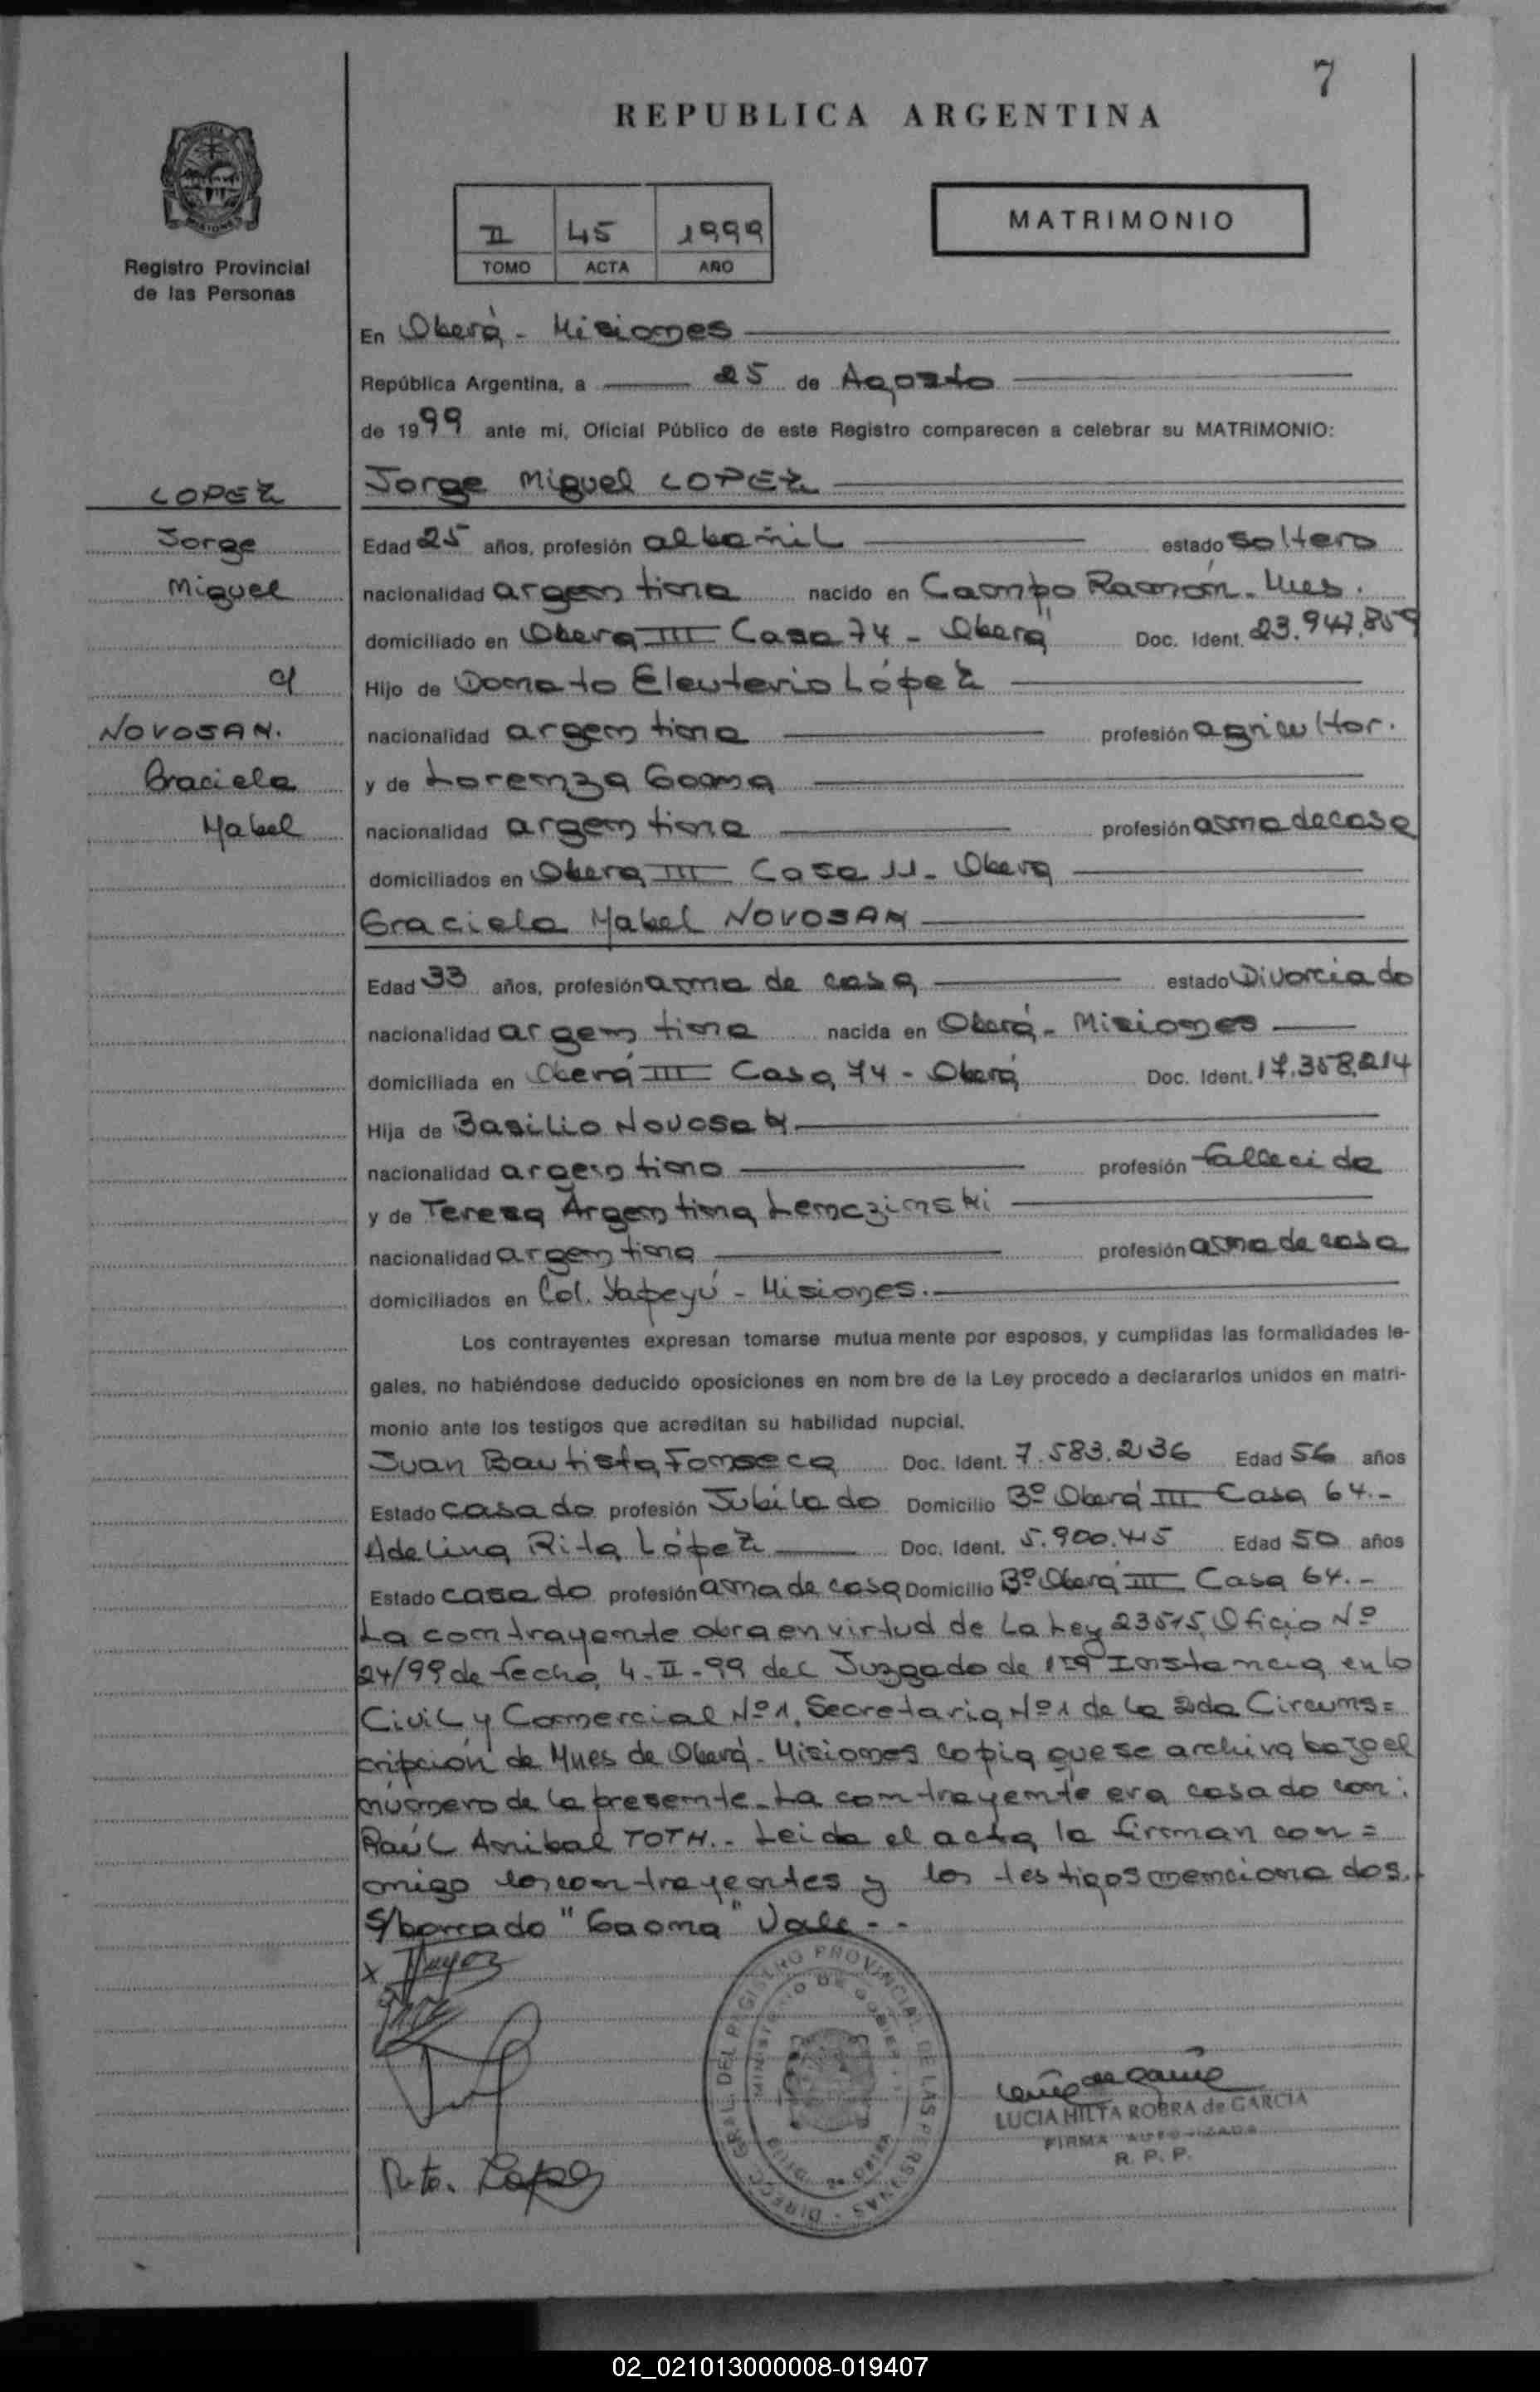 7
REPUBLICA ARGENTINA
MATRIMONIO
II 45 1999
TOMO ACTA AÑO
Registro Provincial
de las Personas
En Oberá - Misiones
República Argentina, a 25 de Agosto
de 1999 ante mi, Oficial Público de este Registro comparecen a celebrar su MATRIMONIO:
LOPEZ
Jorge
Miguel
c/
NOVOSAK.
Graciela
Mabel
Jorge Miguel LOPEZ
Edad 25 años, profesión albañil estado soltero
nacionalidad argentina nacido en Campo Ramón. Mnes.
domiciliado en Oberá III Casa 74 - Oberá Doc. Ident. 23.947.859
Hijo de Donato Eleuterio López
nacionalidad argentina profesión agricultor.
y de Lorenza Gaona
nacionalidad argentina profesión ama de casa
domiciliados en Oberá III Casa 11 - Oberá
Graciela Mabel NOVOSAK
Edad 33 años, profesión ama de casa estado Divorciada
nacionalidad argentina nacida en Oberá - Misiones
domiciliada en Oberá III Casa 74 - Oberá Doc. Ident. 17.358.214
Hija de Basilio Novosak
nacionalidad argentino profesión fallecido
y de Teresa Argentina Lenczinski
nacionalidad argentina profesión ama de casa
domiciliados en Col. Yapeyú - Misiones.
Los contrayentes expresan tomarse mutua mente por esposos, y cumplidas las formalidades le-
gales, no habiéndose deducido oposiciones en nom bre de la Ley procedo a declararlos unidos en matri-
monio ante los testigos que acreditan su habilidad nupcial.
Juan Bautista Fonseca Doc. Ident. 7.583.236 Edad 56 años
Estado casado profesión Jubilado Domicilio Bº Oberá III Casa 64.-
Adelina Rita López Doc. Ident. 5.900.415 Edad 50 años
Estado casada profesión ama de casa Domicilio Bº Oberá III Casa 64.-
La contrayente obra en virtud de la Ley 23515, Oficio Nº
24/99 de fecha 4-II-99 del Juzgado de 1ra Instancia en lo
Civil y Comercial Nº1, Secretaria Nº1 de la 2da Circuns=
cripción de Mnes de Oberá - Misiones copia que se archiva bajo el
número de la presente. La contrayente era casada con:
Raúl Anibal TOTH.- Leida el acta la firman con=
migo los contrayentes y los testigos mencionados.
S/borrado "Gaona" Vale.-
x
Rita. Lopez
DIRECC. GRAL. DEL REGISTRO PROVINCIAL DE LAS PERSONAS
MINISTERIO DE GOBIERNO
LUCIA HILTA ROBRA de GARCIA
FIRMA AUTORIZADA
R. P. P.
02_021013000008-019407